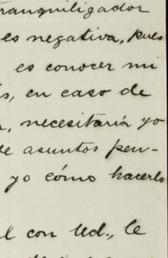 tranquilizador
es negativa, pues
es conocer mi
s, en caso de
, necesitaría yo
de asuntos pen-
yo cómo hacerlo
l con Ud., le